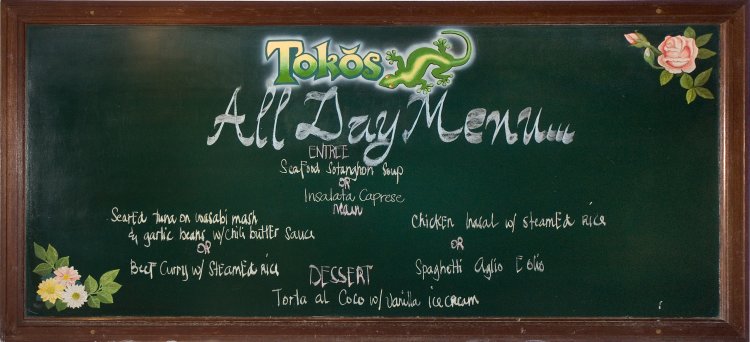 Tokŏs
All Day Menu...
ENTREE
Seafood Sotanghon Soup
OR
Insalata Caprese
Main
Seared tuna on wasabi mash
& garlic beans w/ chili butter sauce
OR
Beef Curry w/ Steamed rice
Chicken Inasal w/ steamed rice
OR
Spaghetti Aglio E Olio
DESSERT
Torta al Coco w/ Vanilla ice cream